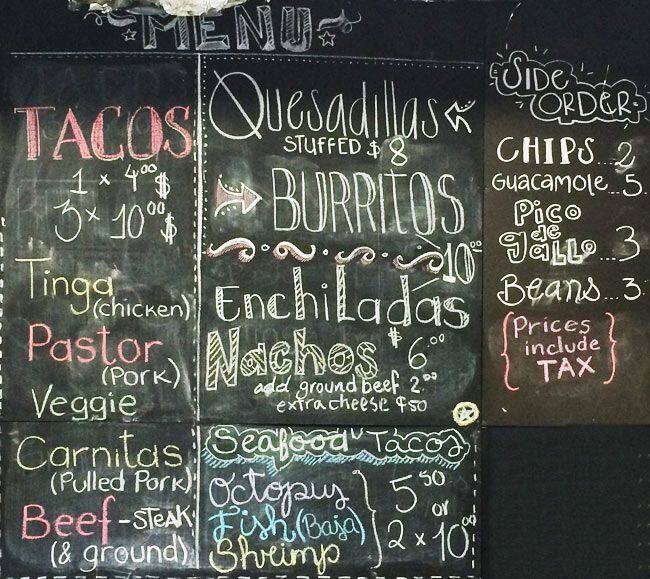 MENU
TACOS
1 x 4.00 $
3 x 10.00 $
Tinga
(chicken)
Pastor
(PORK)
Veggie
Carnitas
(Pulled Pork)
Beef - STEAK
(& ground)
Quesadillas
STUFFED $8
BURRITOS
10.00
EnchiLadas
Nachos $6.00
add ground beef 2.00
extra cheese $.50
Seafood Tacos
Octopus
Fish (Baja)
Shrimp
5.50
or
2 x 10.00
SIDE
ORDER
CHIPS...2
GUACAMOLE...5
Pico
de
gaLLo...3
Beans...3
(Prices
include
TAX)